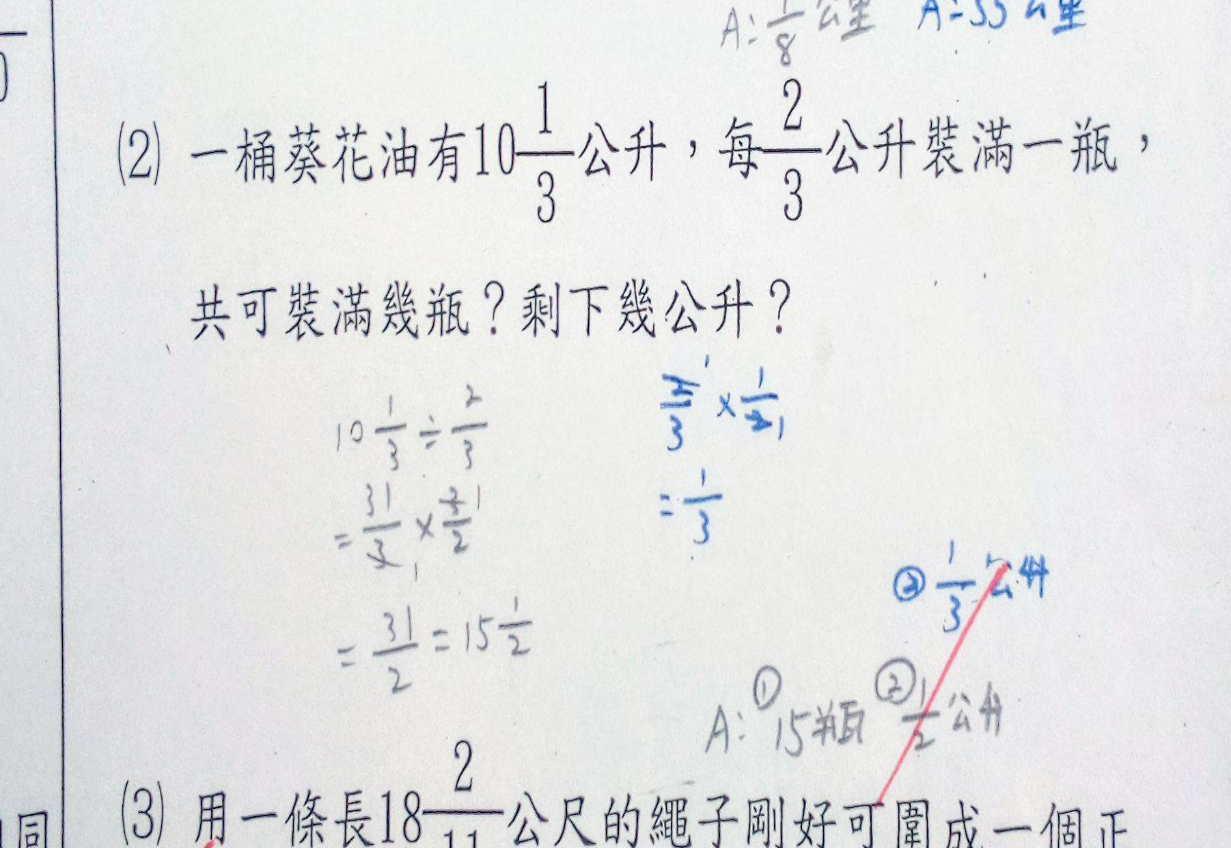 A:1/8公里 A:55公里
(2) 一桶葵花油有10 1/3公升,每2/3公升裝滿一瓶,
共可裝滿幾瓶?剩下幾公升?
10 1/3 ÷ 2/3
= 31/3 × 3/2
= 31/2 = 15 1/2
2/3 × 1/2
= 1/3
② 1/3 公升
A: ① 15瓶 ② 1/2 公升
(3) 用一條長18 2/11公尺的繩子剛好可圍成一個正
同